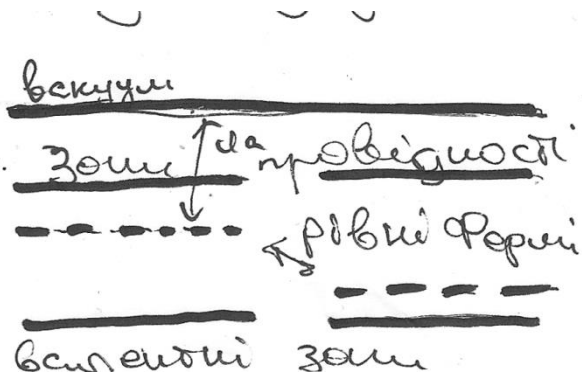 вакуум
Зони провідності
рівні Фермі
валентні зони